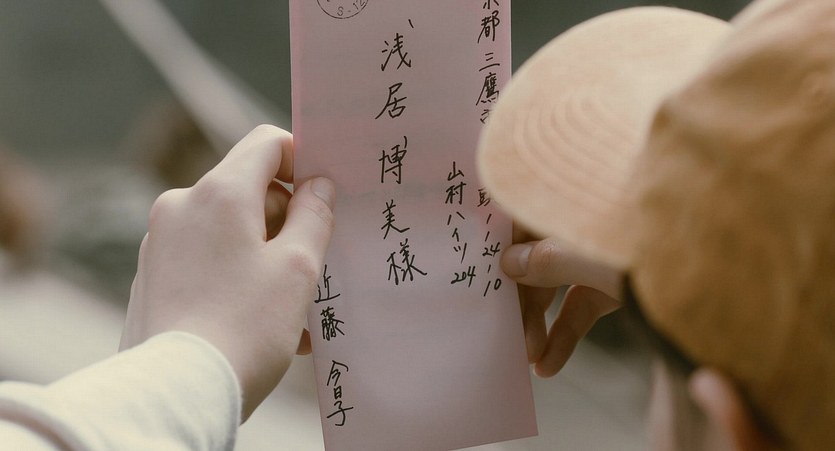 京都 三鷹市 頭1-24-10
山村ハイツ204
浅居 博美様
近藤 今日子
8.12